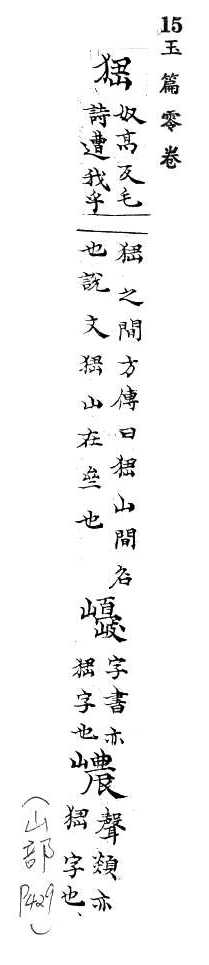 15玉篇零卷
峱
奴高反毛
詩遭我乎
峱之間方傳曰峱山間名
也說文峱山在亝也
巎
字書亦
峱字也
嶩
聲類亦
峱字也、
(山部P429)